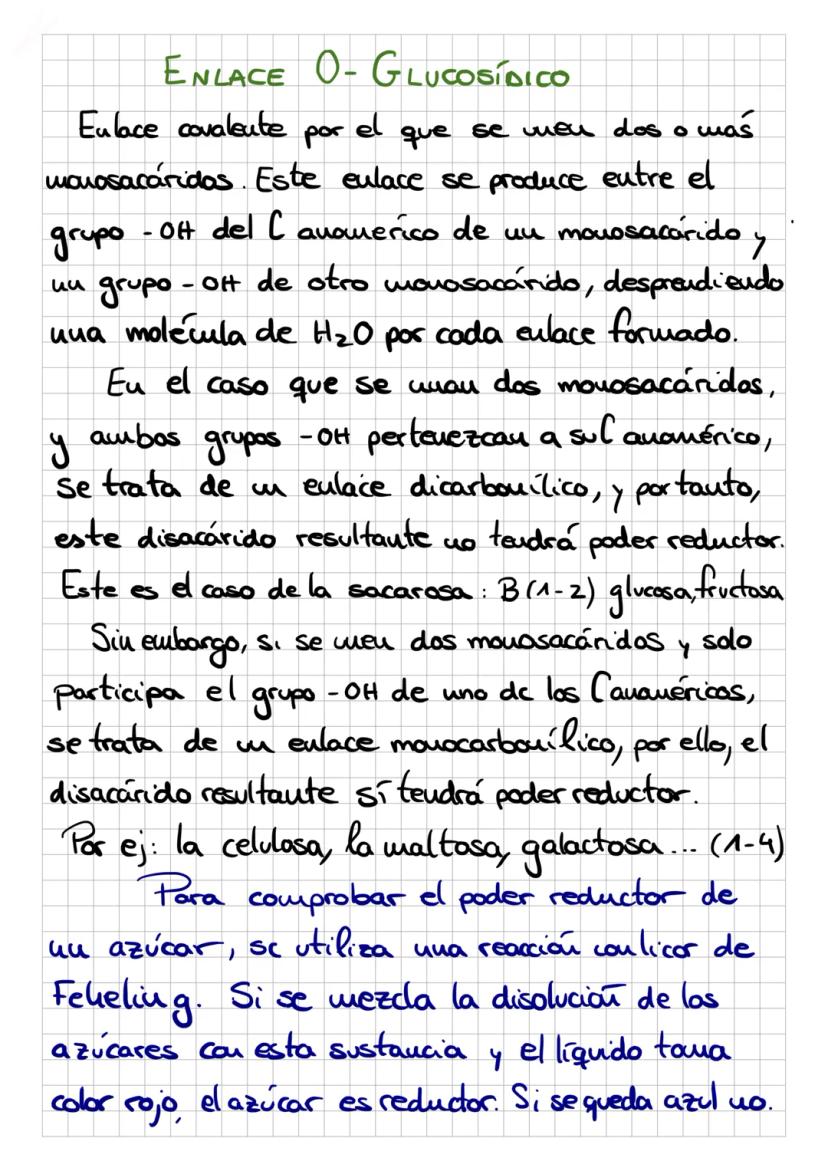 ENLACE O-GLUCOSÍDICO
Enlace covalente por el que se unen dos o más
monosacáridos. Este enlace se produce entre el
grupo -OH del C anomérico de un monosacárido y
un grupo -OH de otro monosacárido, desprendiendo
una molécula de H₂O por cada enlace formado.
En el caso que se unan dos monosacáridos,
y ambos grupos -OH pertenezcan a su C anomérico,
se trata de un enlace dicarbonílico, y por tanto,
este disacárido resultante no tendrá poder reductor.
Este es el caso de la sacarosa: B(1-2) glucosa, fructosa
Sin embargo, si se unen dos monosacáridos y solo
participa el grupo -OH de uno de los C anoméricos,
se trata de un enlace monocarbonílico, por ello, el
disacárido resultante sí tendrá poder reductor.
Por ej: la celulosa, la maltosa, galactosa... (1-4)
Para comprobar el poder reductor de
un azúcar, se utiliza una reacción con licor de
Feheling. Si se mezcla la disolución de los
azúcares con esta sustancia y el líquido toma
color rojo, el azúcar es reductor. Si se queda azul no.